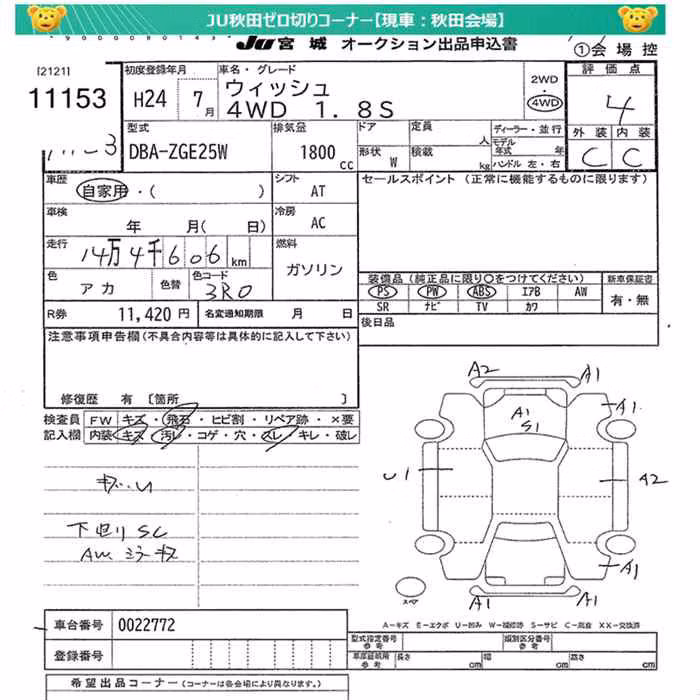 JU秋田ゼロ切りコーナー【現車：秋田会場】
JU 宮 城 オークション出品申込書
①会 場 控
[2121]
11153
初度登録年月
H24 7月
車名・グレード
ウィッシュ
4WD 1.8S
2WD
・
4WD
評 価 点
4
外 装 内 装
C C
型式
DBA-ZGE25W
排気量
1800 cc
ドア
定員 人
形状 W
積載 kg
ディーラー・並行
モデル年式 年
ハンドル 左・右
車歴
自家用・( )
シフト
AT
車検
年 月( 日)
冷房
AC
走行
14万4千606km
燃料
ガソリン
色
アカ
色替
色コード
3R0
R券 11,420 円
名変通知期限 月 日
セールスポイント (正常に機能するものに限ります)
装備品 (純正品に限り○をつけてください)
PS PW ABS エアB AW
SR ナビ TV カワ
新車保証書
有・無
後日品
注意事項申告欄(不具合内容等は具体的に記入して下さい)
修復歴 有 [箇所 ]
検査員記入欄
FW キズ・飛石・ヒビ割・リペア跡・×要
内装 キズ・汚レ・コゲ・穴・スレ・キレ・破レ
下廻り SC
AW ミラーキズ
A2
A1
A1
S1
A1
U1
A2
A1
A1
A1
スペア
A－キズ E－エクボ U－凹み W－補修跡 S－サビ C－腐食 XX－交換済
車台番号 0022772
登録番号
型式指定番号 参考
類別区分番号 参考
車庫証明所 参考
長さ cm
幅 cm
高さ cm
希望出品コーナー (コーナーは各会場により異なります。)